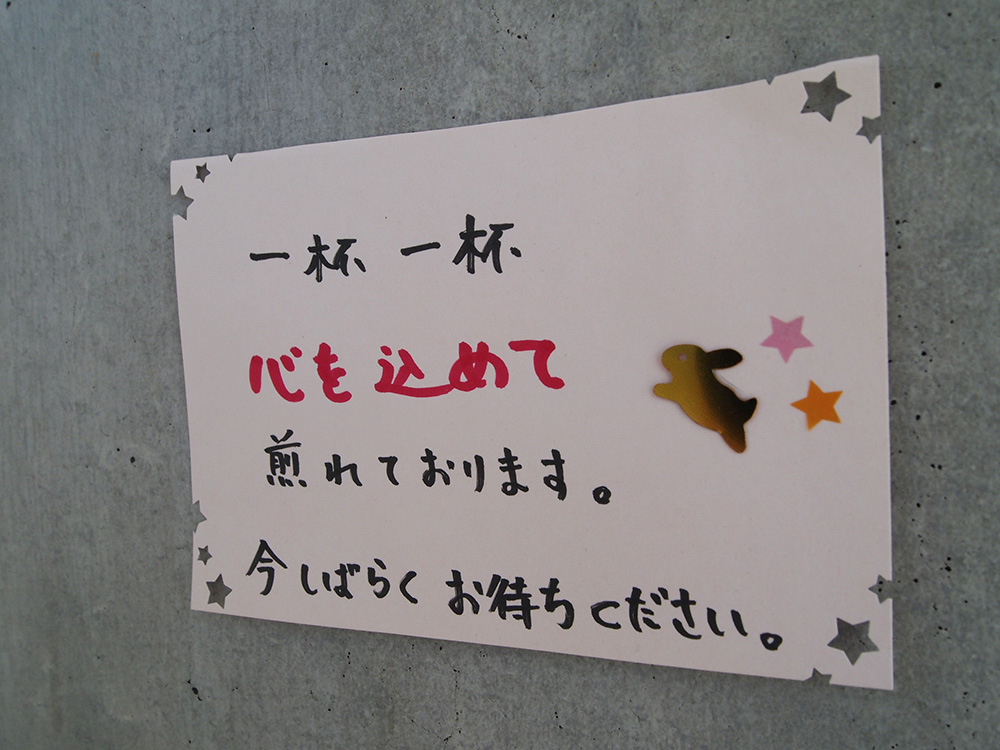 一杯 一杯
心を込めて
煎れております。
今しばらくお待ちください。